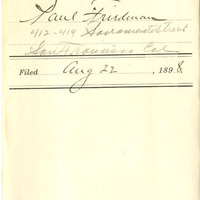 Paul Friedman
412-414 Sacramento Street
San Francisco Cal
Filed Aug 22, 1898.